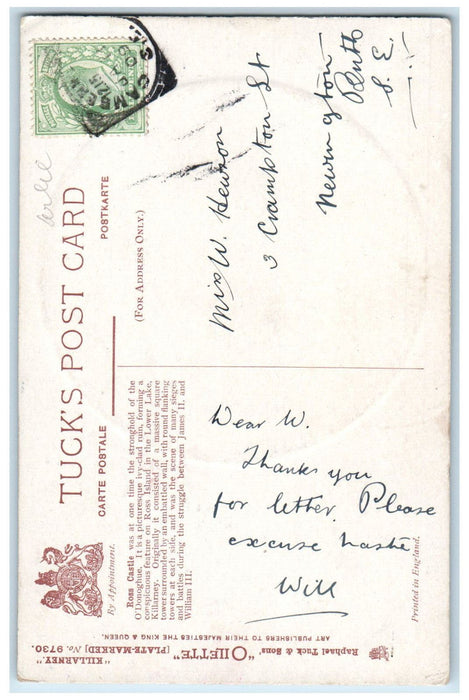 TUCK'S POST CARD
CARTE POSTALE
POSTKARTE
(FOR ADDRESS ONLY.)
By Appointment.
Ross Castle was at one time the stronghold of the
O'Donoghue. It is a picturesque ivy-clad ruin, forming a
conspicuous feature on Ross Island in the Lower Lake,
Killarney. Originally it consisted of a massive square
tower surrounded by an embattled wall, with round flanking
towers at each side, and was the scene of many sieges
and battles during the struggle between James II. and
William III.
Miss W. Hewson
3 Crampton St
Newington
Butts
S. E.
CAMBERWELL
S.E.
Dear W.
Thanks you
for letter. Please
excuse haste
Will
Raphael Tuck & Sons' "OILETTE" [PLATE-MARKED] No. 9730. "KILLARNEY."
ART PUBLISHERS TO THEIR MAJESTIES THE KING & QUEEN.
Printed in England.